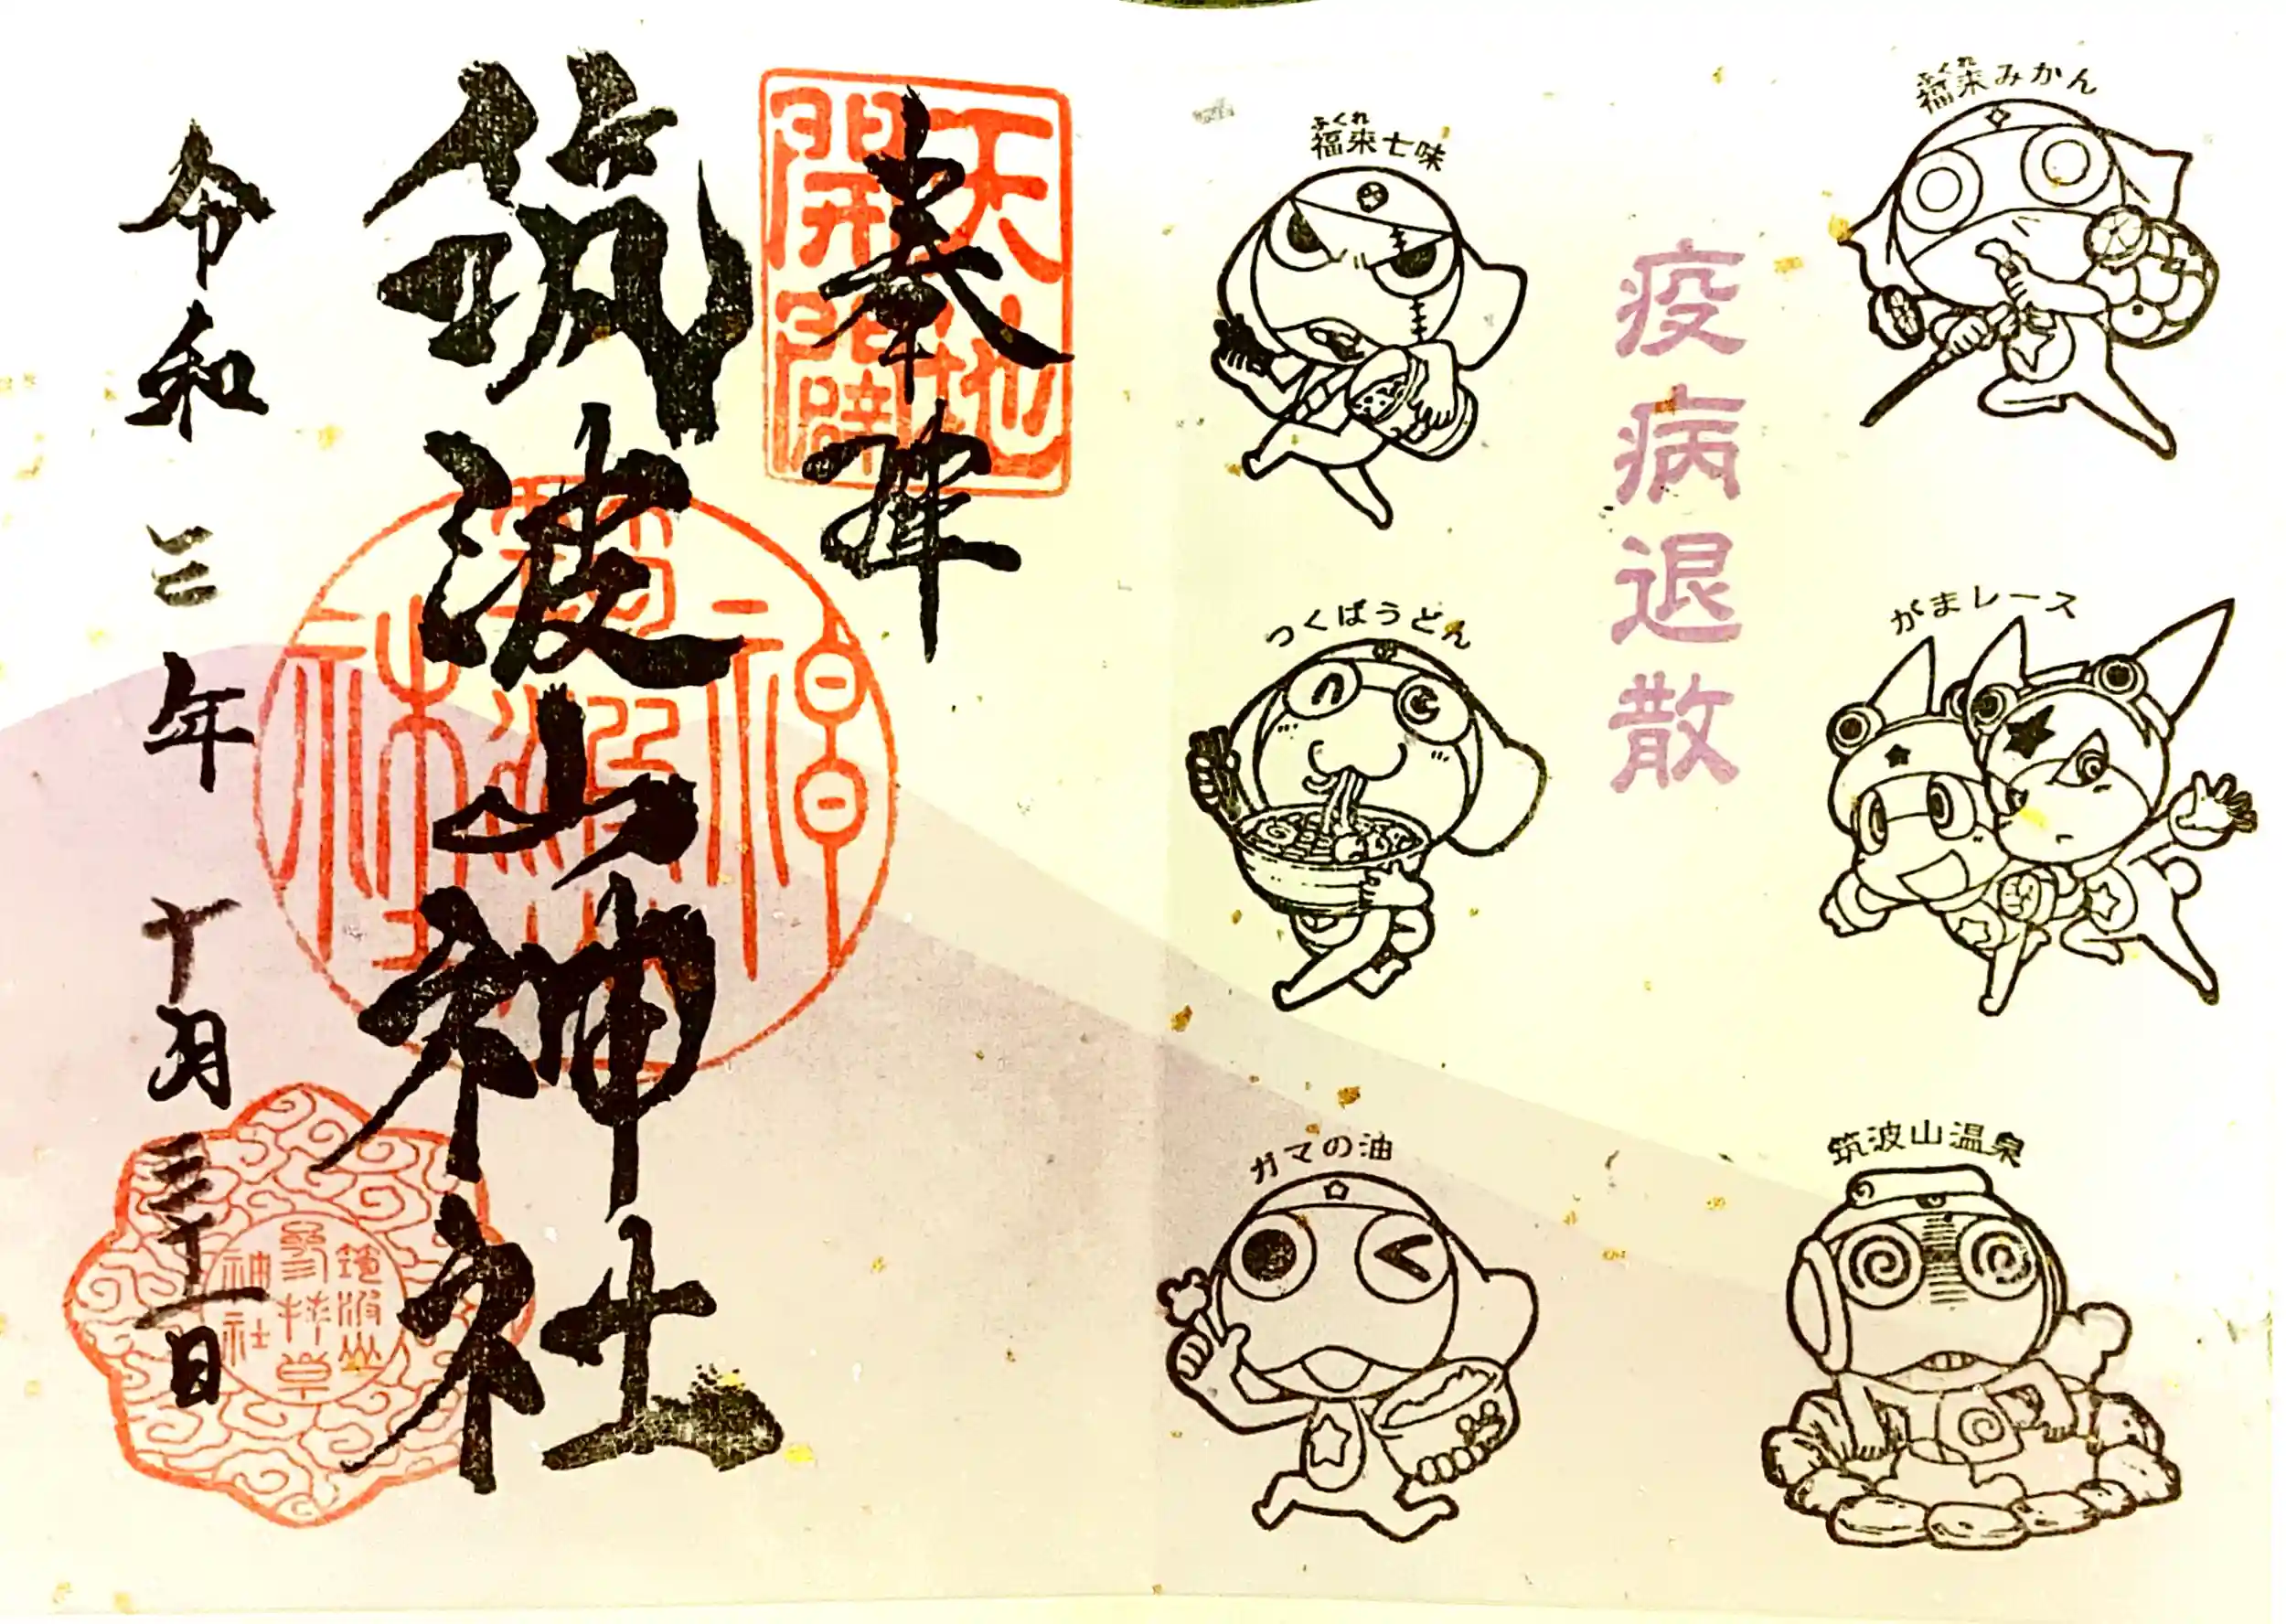 福来みかん
ふくれ
がまレース
筑波山温泉
疫病退散
福来七味
ふくれ
つくばうどん
ガマの油
奉拝
天地
開闢
筑波山神社
令和三年十月三十一日
筑波山
神社